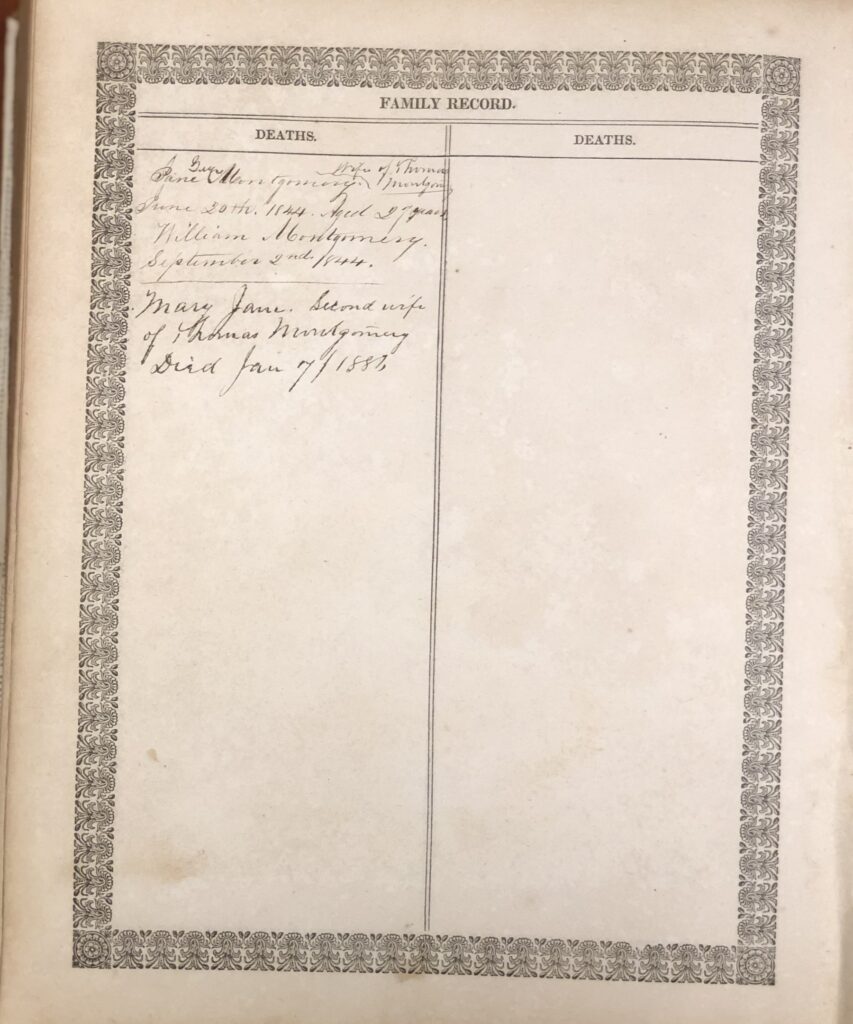 FAMILY RECORD.
DEATHS.
DEATHS.
Jane Montgomery. Wife of Thomas
Montgomery
June 20th. 1844. Aged 27 years
William Montgomery.
September 2nd. 1844.
Mary Jane. Second wife
of Thomas Montgomery
Died Jan 7/